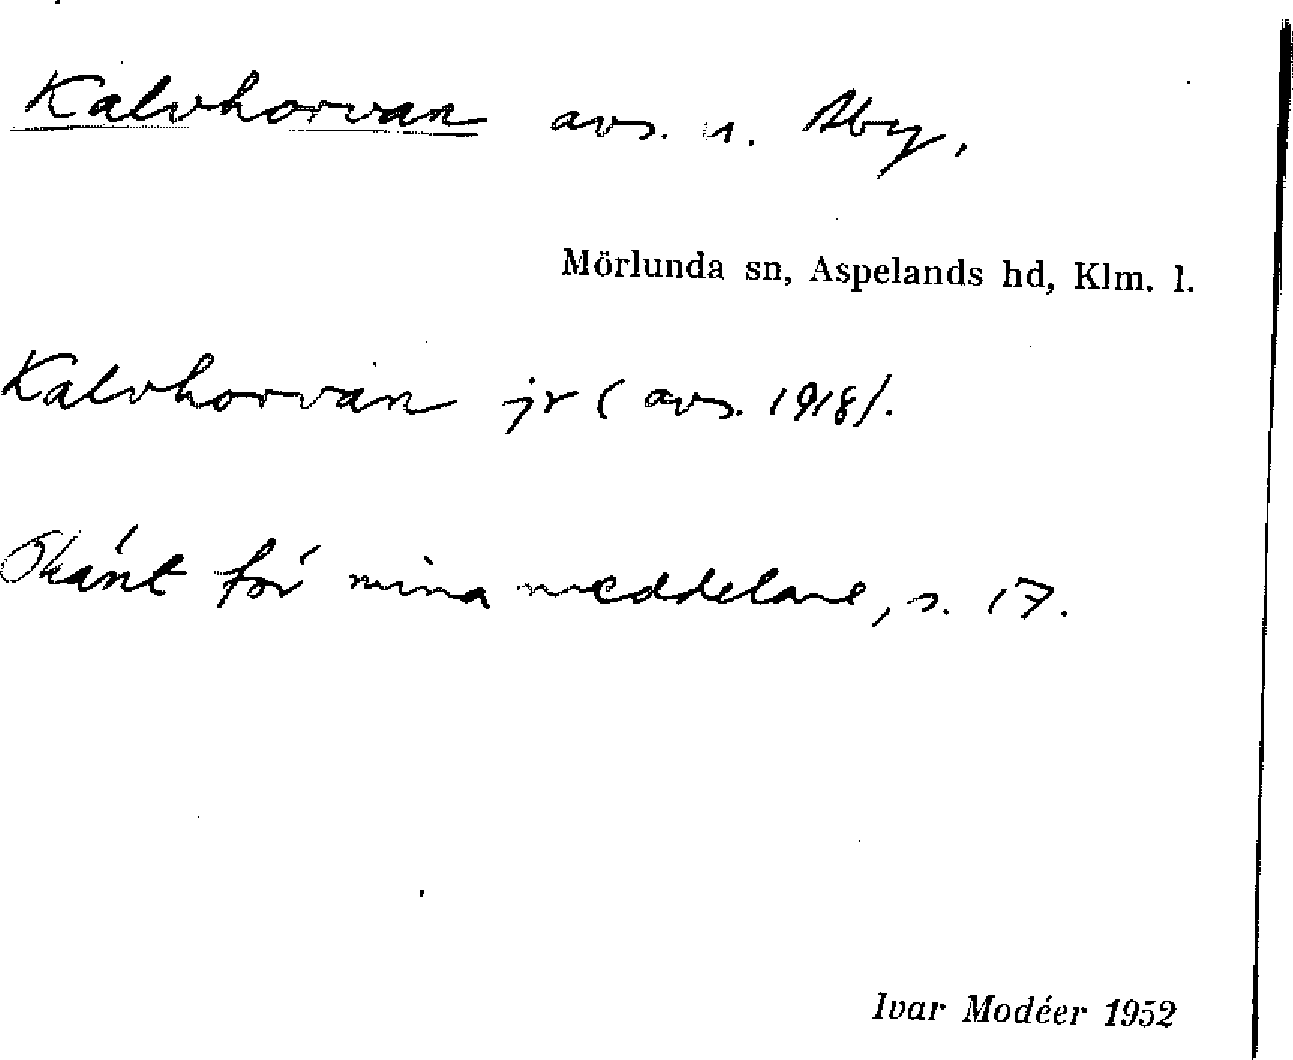 Kalvhorvan avs. u. Åby,
Mörlunda sn, Aspelands hd, Klm. l.
Kalvhorvan jr (avs. 1918).
Okänt för mina meddelare, s. 17.
Ivar Modéer 1952